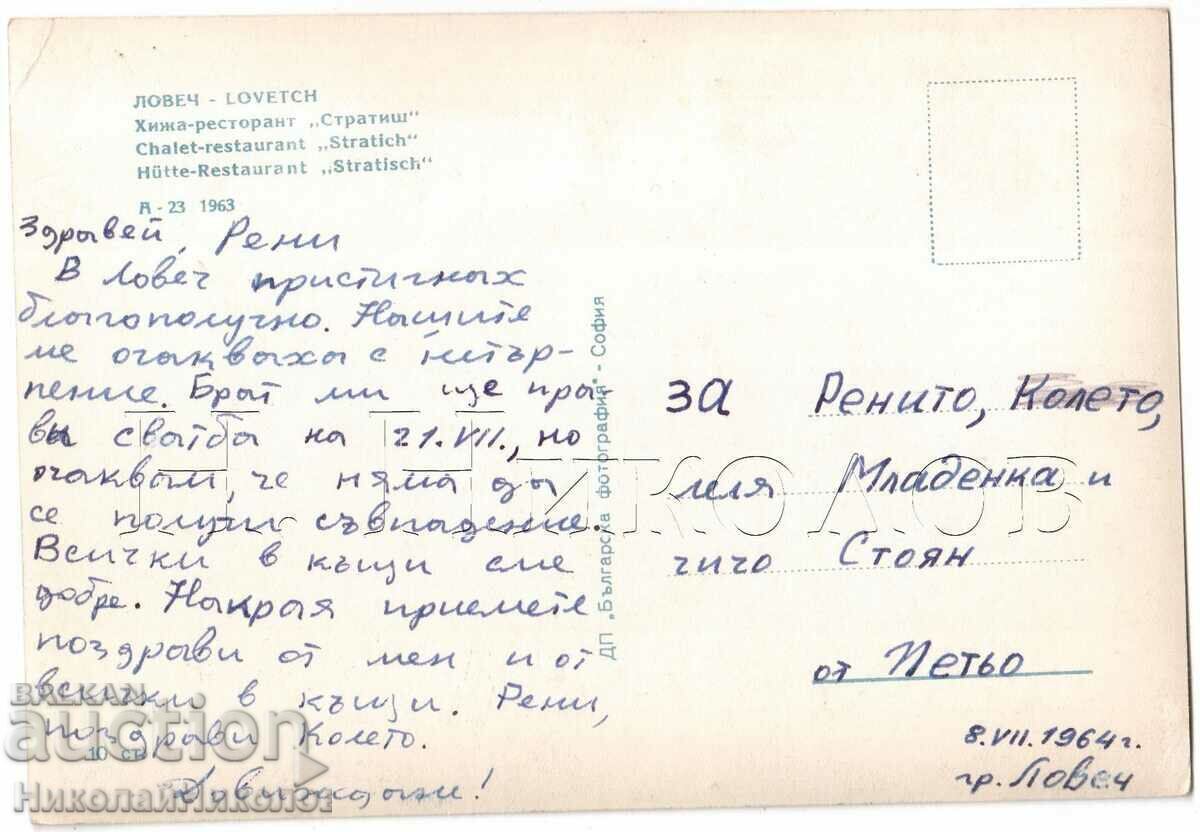 ЛОВЕЧ - LOVETCH
Хижа-ресторант „Стратиш"
Chalet-restaurant „Stratich"
Hütte-Restaurant „Stratisch"
А - 23 1963
Здравей, Рени
В Ловеч пристигнах
благополучно. Нашите
ме очакваха с нетър-
пение. Брат ми ще пра
ви сватба на 21.VII., но
очаквам, че няма да
се получи съвпадение.
Всички в къщи сме
добре. Накрая приемете
поздрави от мен и от
всички в къщи. Рени,
поздрави Колето.
Довиждане!
10 ст.
ДП „Българска фотография" - София
за Ренито, Колето,
леля Младенка и
чичо Стоян
от Петьо
8.VII.1964 г.
гр. Ловеч
Н. НИКОЛОВ
BALKAN
auction
НиколайНиколов